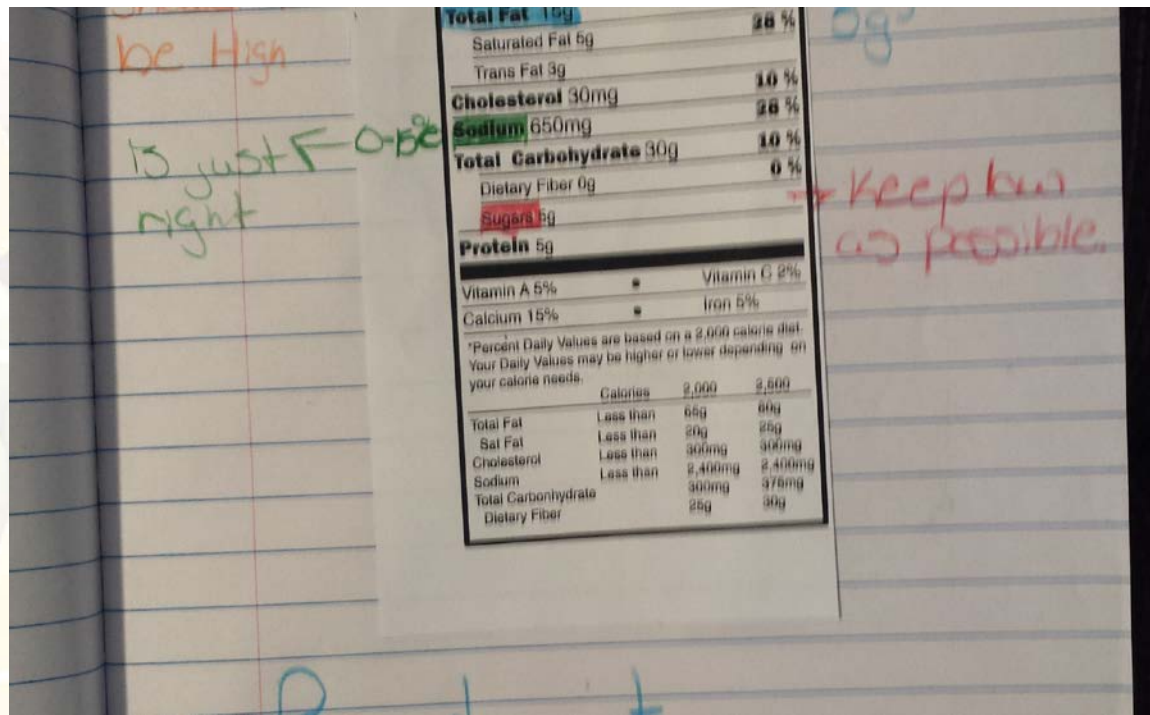 be High
is just
right
0-15%
Total Fat 15g
Saturated Fat 5g
Trans Fat 3g
Cholesterol 30mg 10 %
Sodium 650mg 28 %
Total Carbohydrate 30g 10 %
Dietary Fiber 0g 0 %
Sugars 5g
Protein 5g
0g
Keep low
as possible.
Vitamin A 5% • Vitamin C 2%
Calcium 15% • Iron 5%
*Percent Daily Values are based on a 2,000 calorie diet.
Your Daily Values may be higher or lower depending on
your calorie needs.
Calories 2,000 2,500
Total Fat Less than 65g 80g
Sat Fat Less than 20g 25g
Cholesterol Less than 300mg 300mg
Sodium Less than 2,400mg 2,400mg
Total Carbonhydrate 300mg 375mg
Dietary Fiber 25g 30g